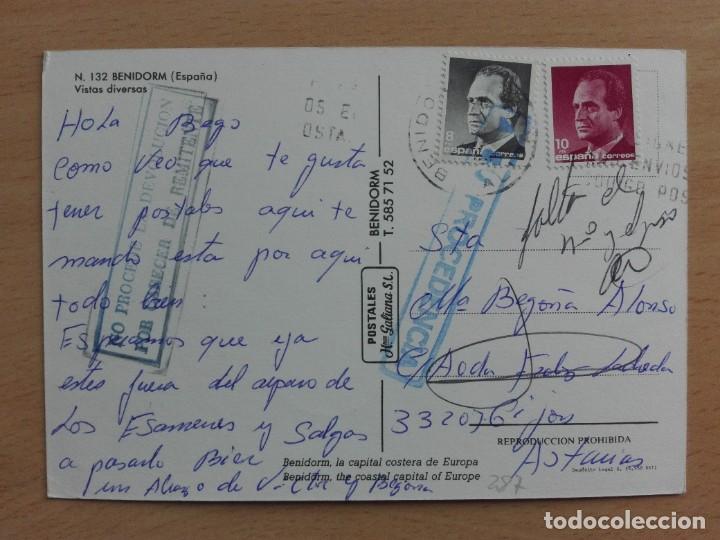 N. 132 BENIDORM (España)
Vistas diversas
Hola Bego
como veo que te gusta
tener postales aqui te
mando esta por aqui
todo bien
Esperamos que ya
estes fuera del
Los Esamenes y Salgas
a pasarlo Bien
un Abrazo de y Begoña
NO PROCEDE LA DEVOLUCION
POR CARECER DE REMITENTE
05 E.
OSTA
BENIDO
8
España correos
10
España correos
ENVIOS
POS
BENIDORM
T. 585 71 52
POSTALES
Hnos Galiana S.L.
PROCEDENCIA
falta el
nº y piso
Sta
Mª Begoña Alonso
33207 Gijon
Asturias
REPRODUCCION PROHIBIDA
Benidorm, la capital costera de Europa
Benidorm, the coastal capital of Europe
287
todocoleccion.net